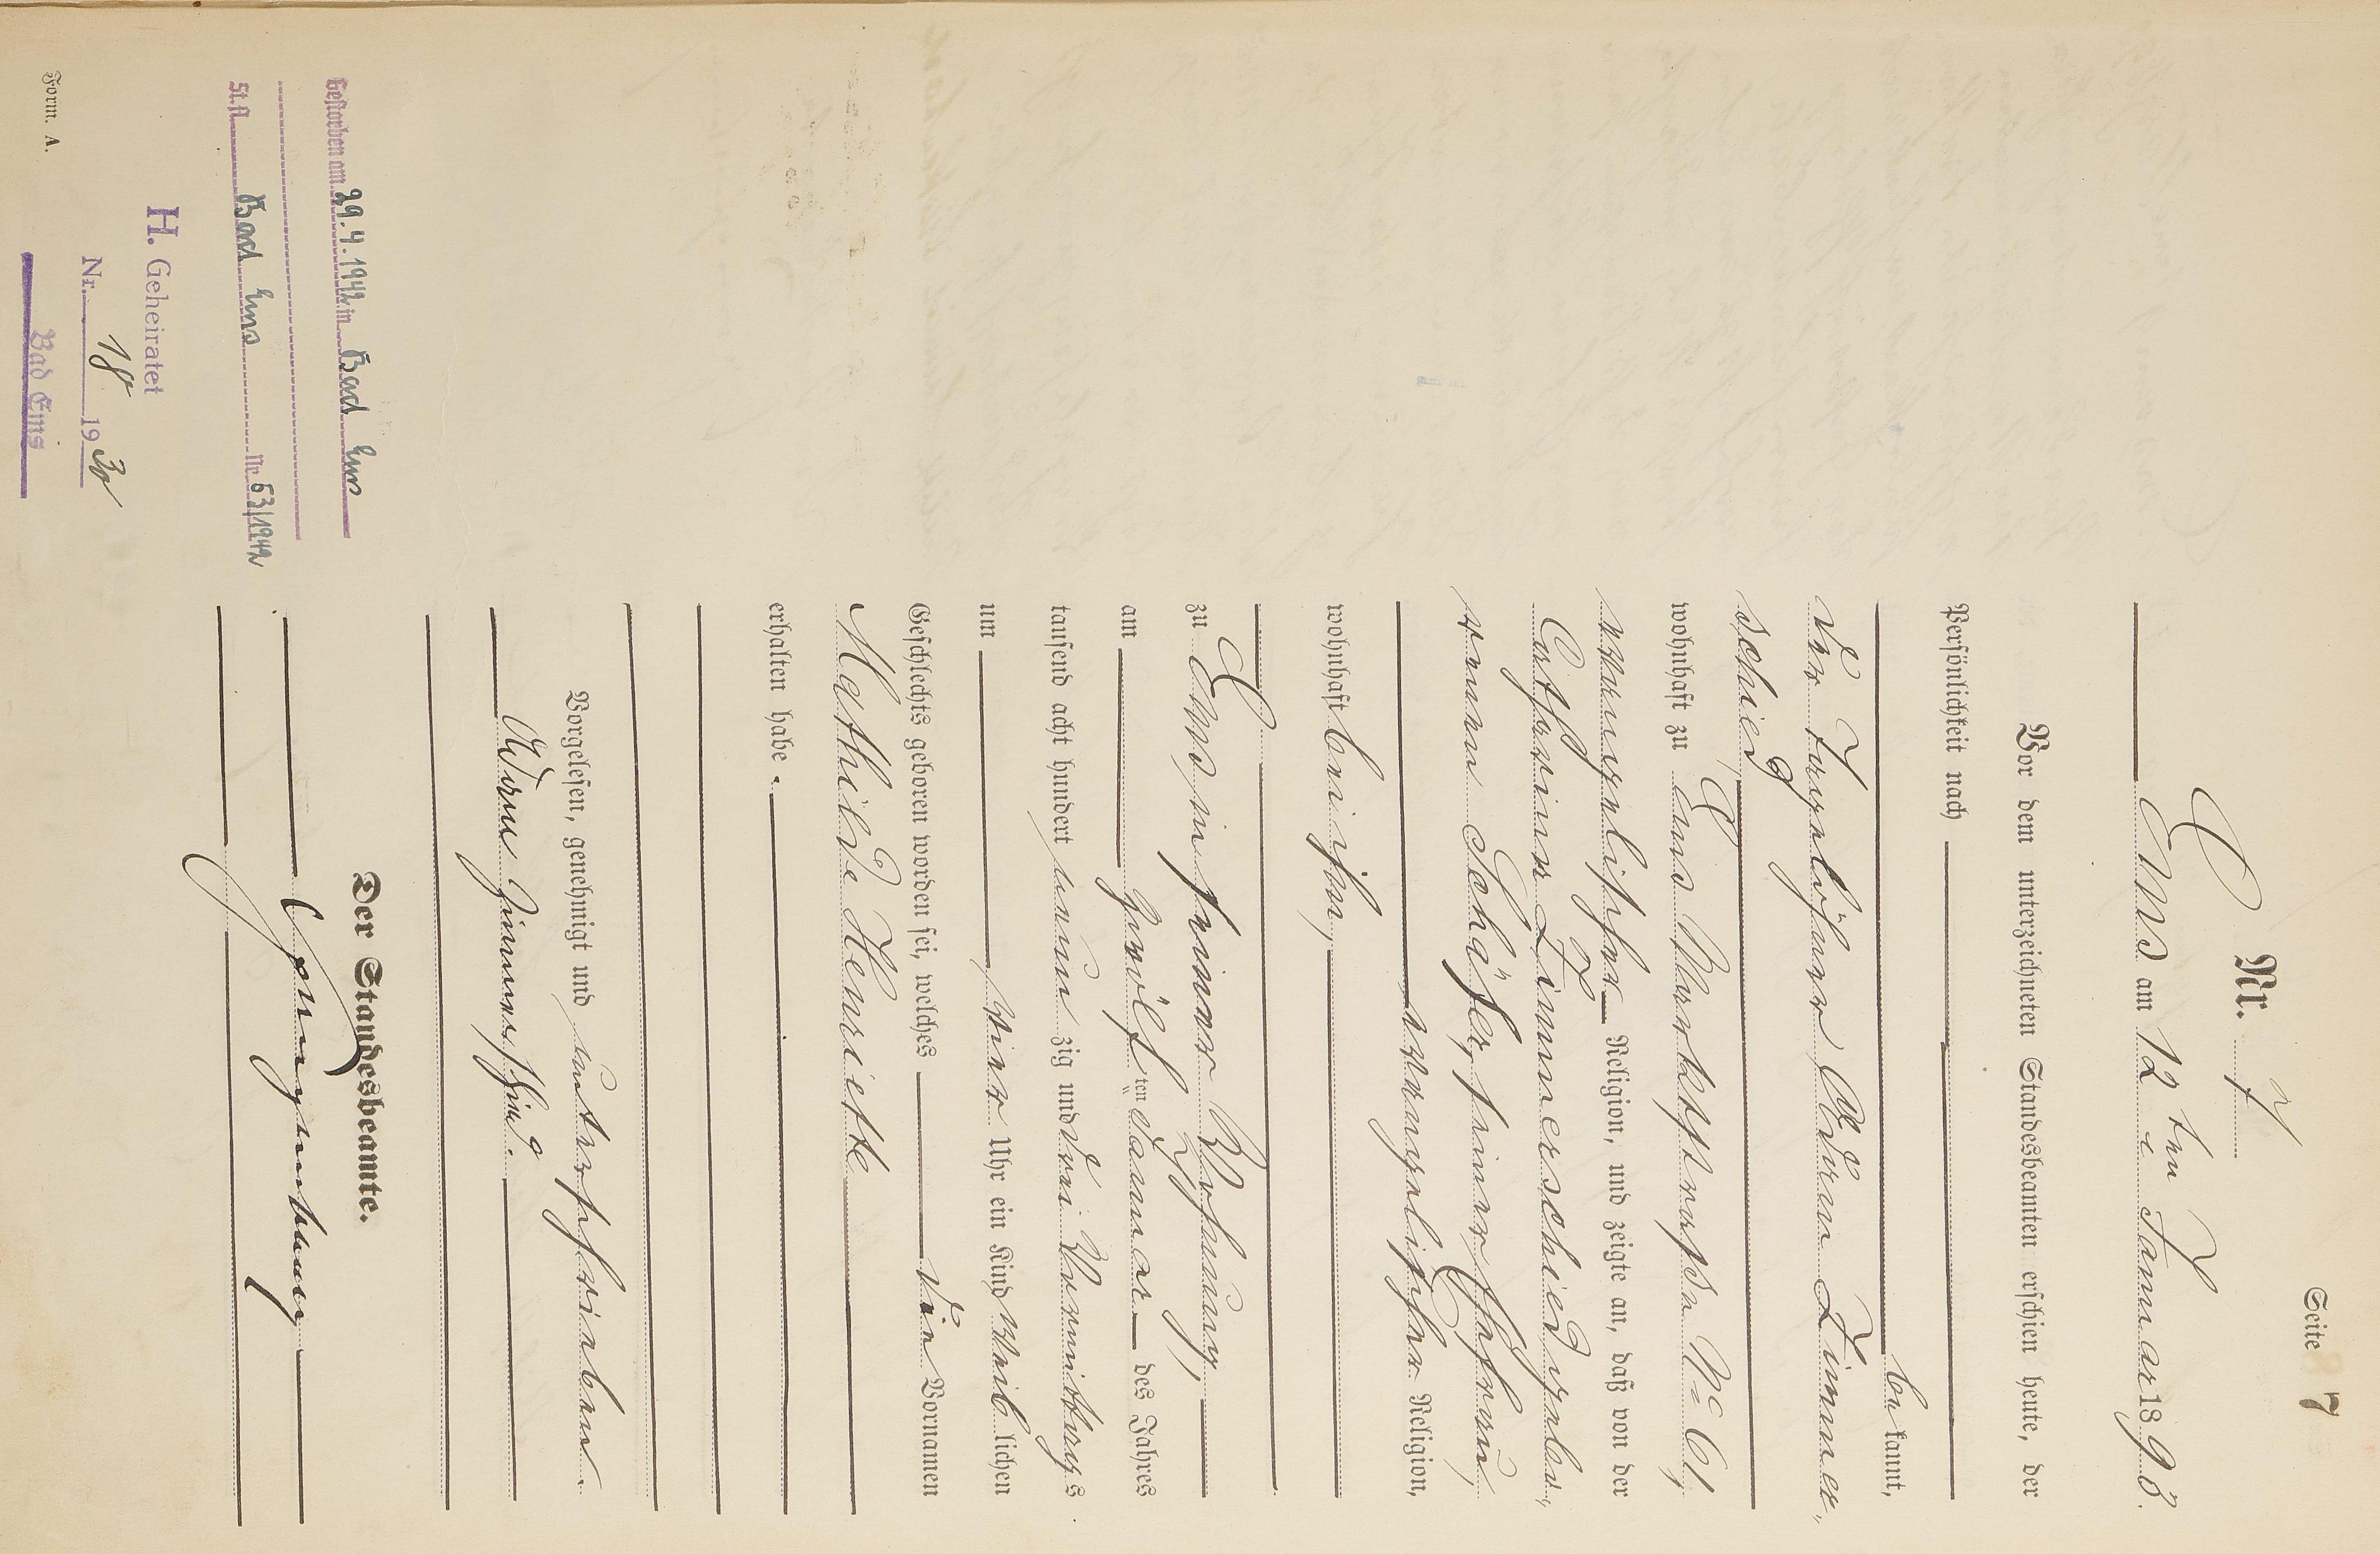 Seite 7
Nr. 7
Ems am 12 ten Januar 1893.
Vor dem unterzeichneten Standesbeamten erschien heute, der
Persönlichkeit nach
bekannt,
der Tagelöhner Adam Zimmer-
schied
wohnhaft zu Ems Marktstraße No 61,
evangelischer Religion, und zeigte an, daß von der
Catharine Zimmerschied gebo-
renen Schäfer, seiner Ehefrau,
evangelischer Religion,
wohnhaft bei ihm,
zu Ems in seiner Wohnung,
am zwölf ten Januar des Jahres
tausend acht hundert neun zig und drei Vormittags
um vier Uhr ein Kind weib lichen
Geschlechts geboren worden sei, welches die Vornamen
Mathilde Henriette
erhalten habe.
Vorgelesen, genehmigt und unterschrieben.
Adam Zimmerschied.
Der Standesbeamte.
Gestorben am 29.4.1942 in Bad Ems
St.A. Bad Ems Nr. 63/1942
H. Geheiratet
Nr. 18 19 30
Bad Ems
Form. A.